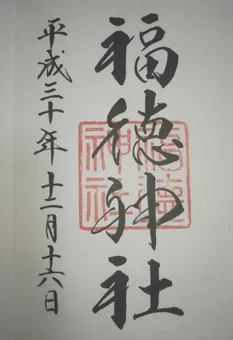 福徳神社
平成三十年十二月十六日
福徳神社